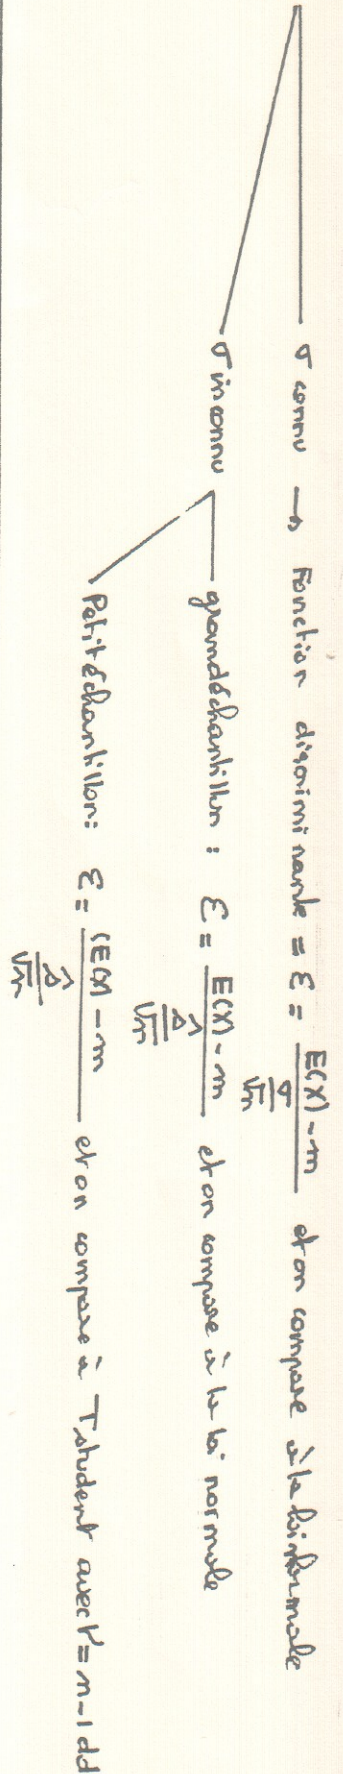 σ connu → Fonction discriminante = ε = (E(X) - m) / (σ/√n) et on compare à la loi normale
σ inconnu
grand échantillon : ε = (E(X) - m) / (ŝ/√n) et on compare à la loi normale
Petit échantillon : ε = (E(X) - m) / (ŝ/√n) et on compare à T student avec r = n-1 dd